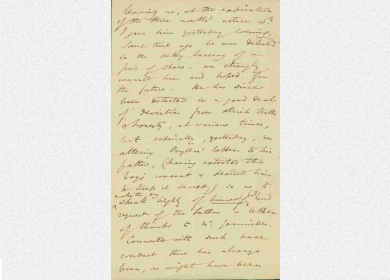 leaving us, at the expiration
of the three months' notice wh
I gave him yesterday evening.
Some time ago he was detected
in the petty larceny of a
pair of shoes - we strongly
warned him and hoped for
the future. He has since
been detected in a good deal
of deviation from strict truth
& honesty, at various times,
but especially, yesterday, in
altering letters to his
father, (having extorted the
boy's consent & desired him
to keep it secret) so as to
make the boy
speak highly of himself, and
request of the father a letter
of thanks to Mr.
Connected with such base
conduct there has always
been, as might have been